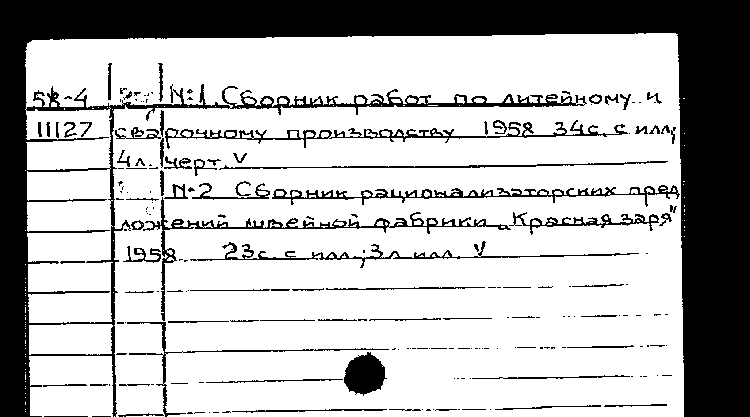 58-4 №1. Сборник работ по литейному и
11127 сварочному производству 1958 34с. с илл;
4л. черт. V
№2 Сборник рационализаторских пред
ложений швейной фабрики „Красная заря"
1958 23с. с илл.; 3л илл. V